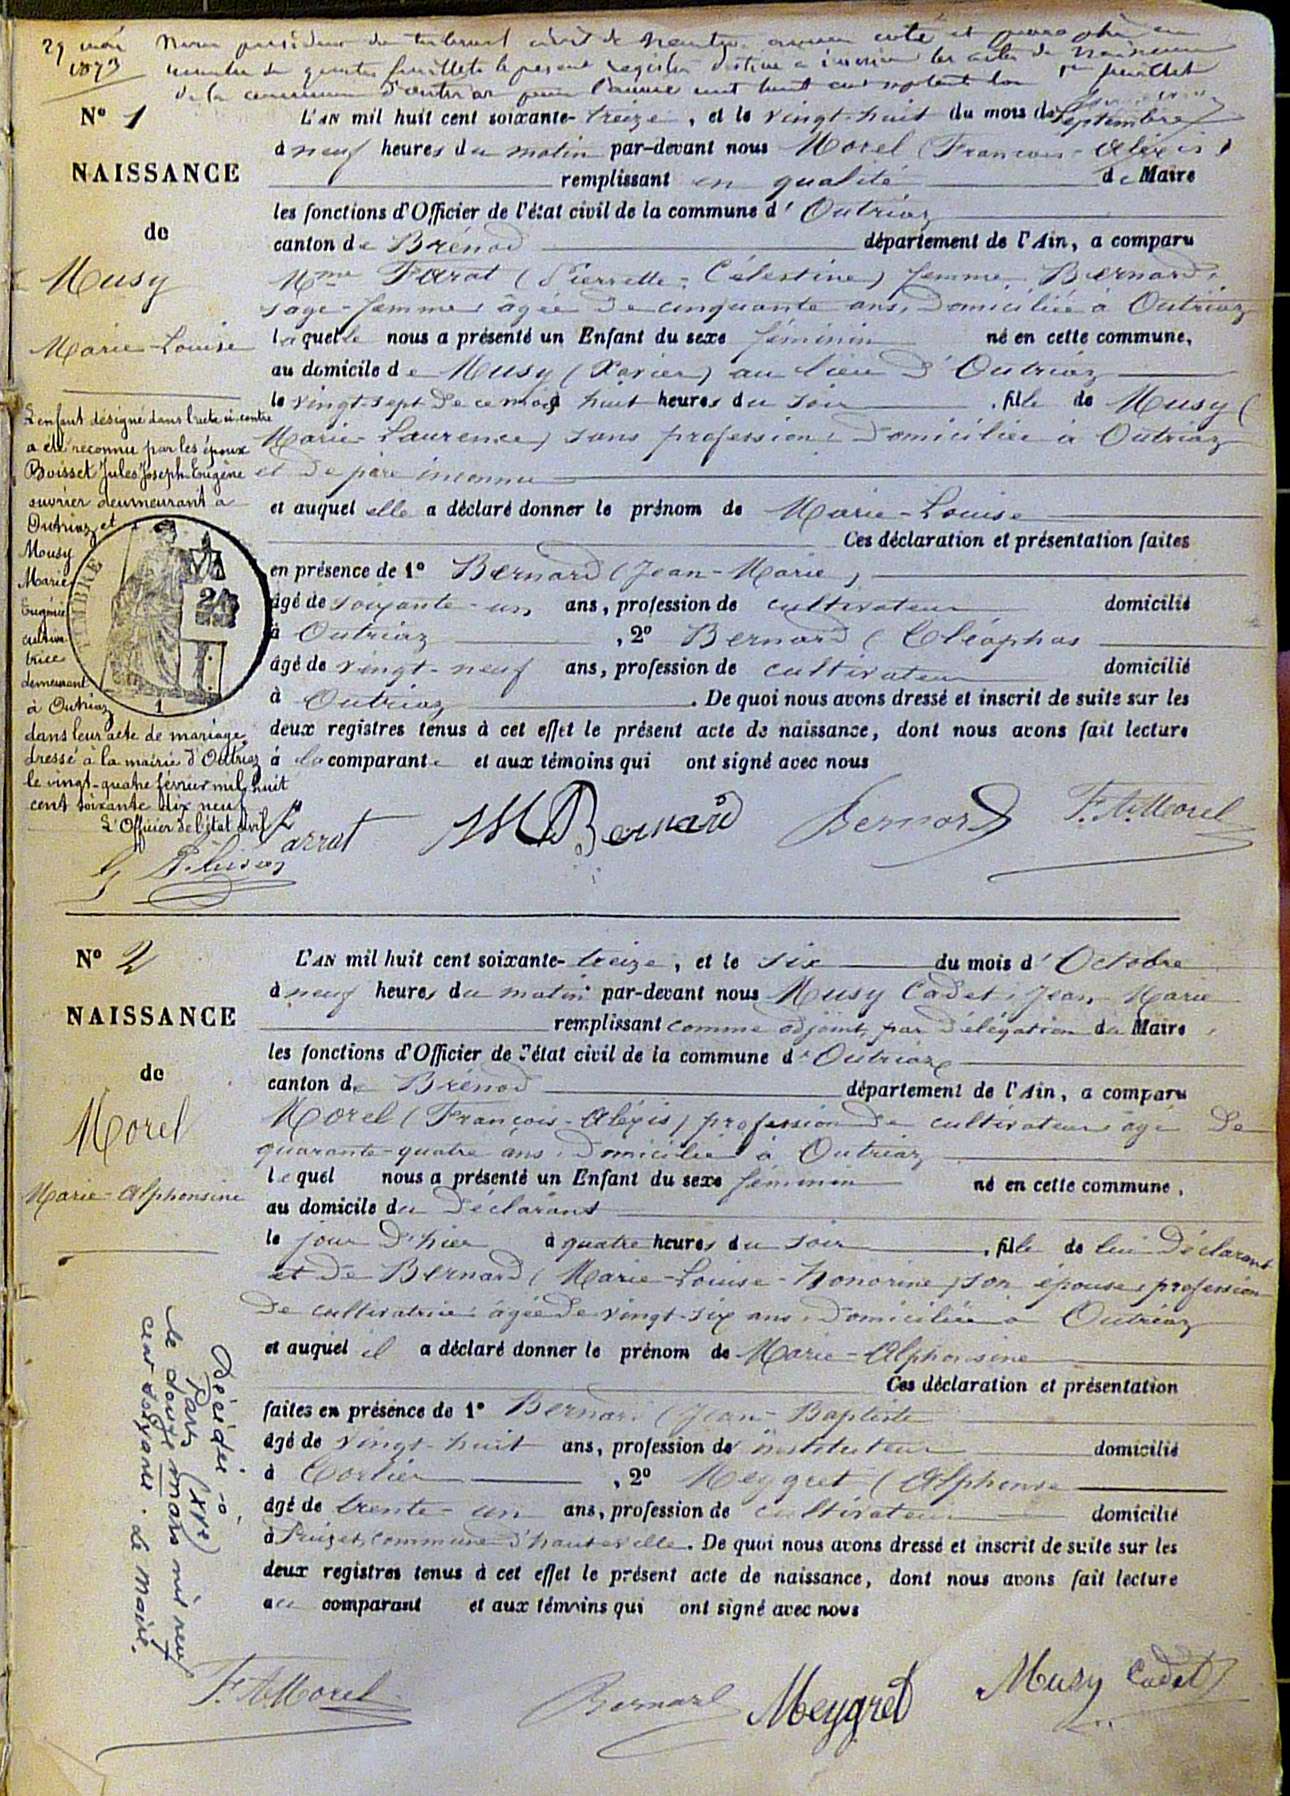 29 mai
1873
Nous président du tribunal civil de Nantua, avons coté et paraphé en
de quinze feuillets le présent registre destiné à inscrire les actes de naissance
de la commune d'outriaz pour l'année mil huit cent septante trois 1er feuillet
N° 1
NAISSANCE
de
Musy
Marie-Louise
L'AN mil huit cent soixante-treize, et le vingt-huit du mois de Septembre
à neuf heures du matin par-devant nous Morel (François-Aléxis)
remplissant en qualité de Maire
les fonctions d'Officier de l'état civil de la commune d' Outriaz
canton de Brénod département de l'Ain, a comparu
Mme Farat (Pierrette-Célestine) femme Bernard,
sage-femme, âgée de cinquante ans, domiciliée à Outriaz
laquelle nous a présenté un Enfant du sexe féminin né en cette commune,
au domicile de Musy (Xavier) au lieu d'Outriaz
le vingt-sept de ce mois à huit heures du soir, fille de Musy (
Marie-Laurence) sans profession, domiciliée à Outriaz
et de père inconnu
et auquel elle a déclaré donner le prénom de Marie-Louise
Ces déclaration et présentation faites
en présence de 1° Bernard (Jean-Marie)
âgé de soixante-un ans, profession de cultivateur domicilié
à Outriaz, 2° Bernard (Cléophas
âgé de vingt-neuf ans, profession de cultivateur domicilié
à Outriaz. De quoi nous avons dressé et inscrit de suite sur les
deux registres tenus à cet effet le présent acte de naissance, dont nous avons fait lecture
à la comparante et aux témoins qui ont signé avec nous
L'enfant désigné dans l'acte ci-contre
a été reconnu par les époux
Boisset Jules Joseph Eugène
ouvrier demeurant à
Outriaz et
Mousy
Marie
Eugénie
cultiva
trice
demeurant
à Outriaz
dans leur acte de mariage
dressé à la mairie d'Outriaz
le vingt-quatre février mil huit
cent soixante dix neuf
L'Officier de l'état civil
TIMBRE
2
1
Farrat
JM Bernard
Bernard
F. A. Morel
N° 2
NAISSANCE
de
Morel
Marie-Alphonsine
L'AN mil huit cent soixante-treize, et le six du mois d' Octobre
à neuf heures du matin par-devant nous Musy Cadet, Jean Marie
remplissant comme adjoint, par délégation du Maire,
les fonctions d'Officier de l'état civil de la commune d' Outriaz
canton de Brénod département de l'Ain, a comparu
Morel (François-Aléxis) profession de cultivateur âgé de
quarante-quatre ans, domicilié à Outriaz
lequel nous a présenté un Enfant du sexe féminin né en cette commune,
au domicile du déclarant
le jour d'hier à quatre heures du soir, fille de lui déclarant
et de Bernard (Marie-Louise-Honorine) son épouse, profession
de cultivatrice, âgée de vingt-six ans, domiciliée à Outriaz
et auquel il a déclaré donner le prénom de Marie-Alphonsine
Ces déclaration et présentation
faites en présence de 1° Bernard (Jean-Baptiste
âgé de vingt-huit ans, profession de instituteur domicilié
à Corlier, 2° Meygret (Alphonse
âgé de trente-un ans, profession de cultivateur domicilié
à Ruizet, commune d'hauteville. De quoi nous avons dressé et inscrit de suite sur les
deux registres tenus à cet effet le présent acte de naissance, dont nous avons fait lecture
au comparant et aux témoins qui ont signé avec nous
Décédée à
Paris (XVe)
le douze mars mil neuf
cent soixante. Le Maire.
F. A. Morel
Bernard
Meygret
Musy Cadet